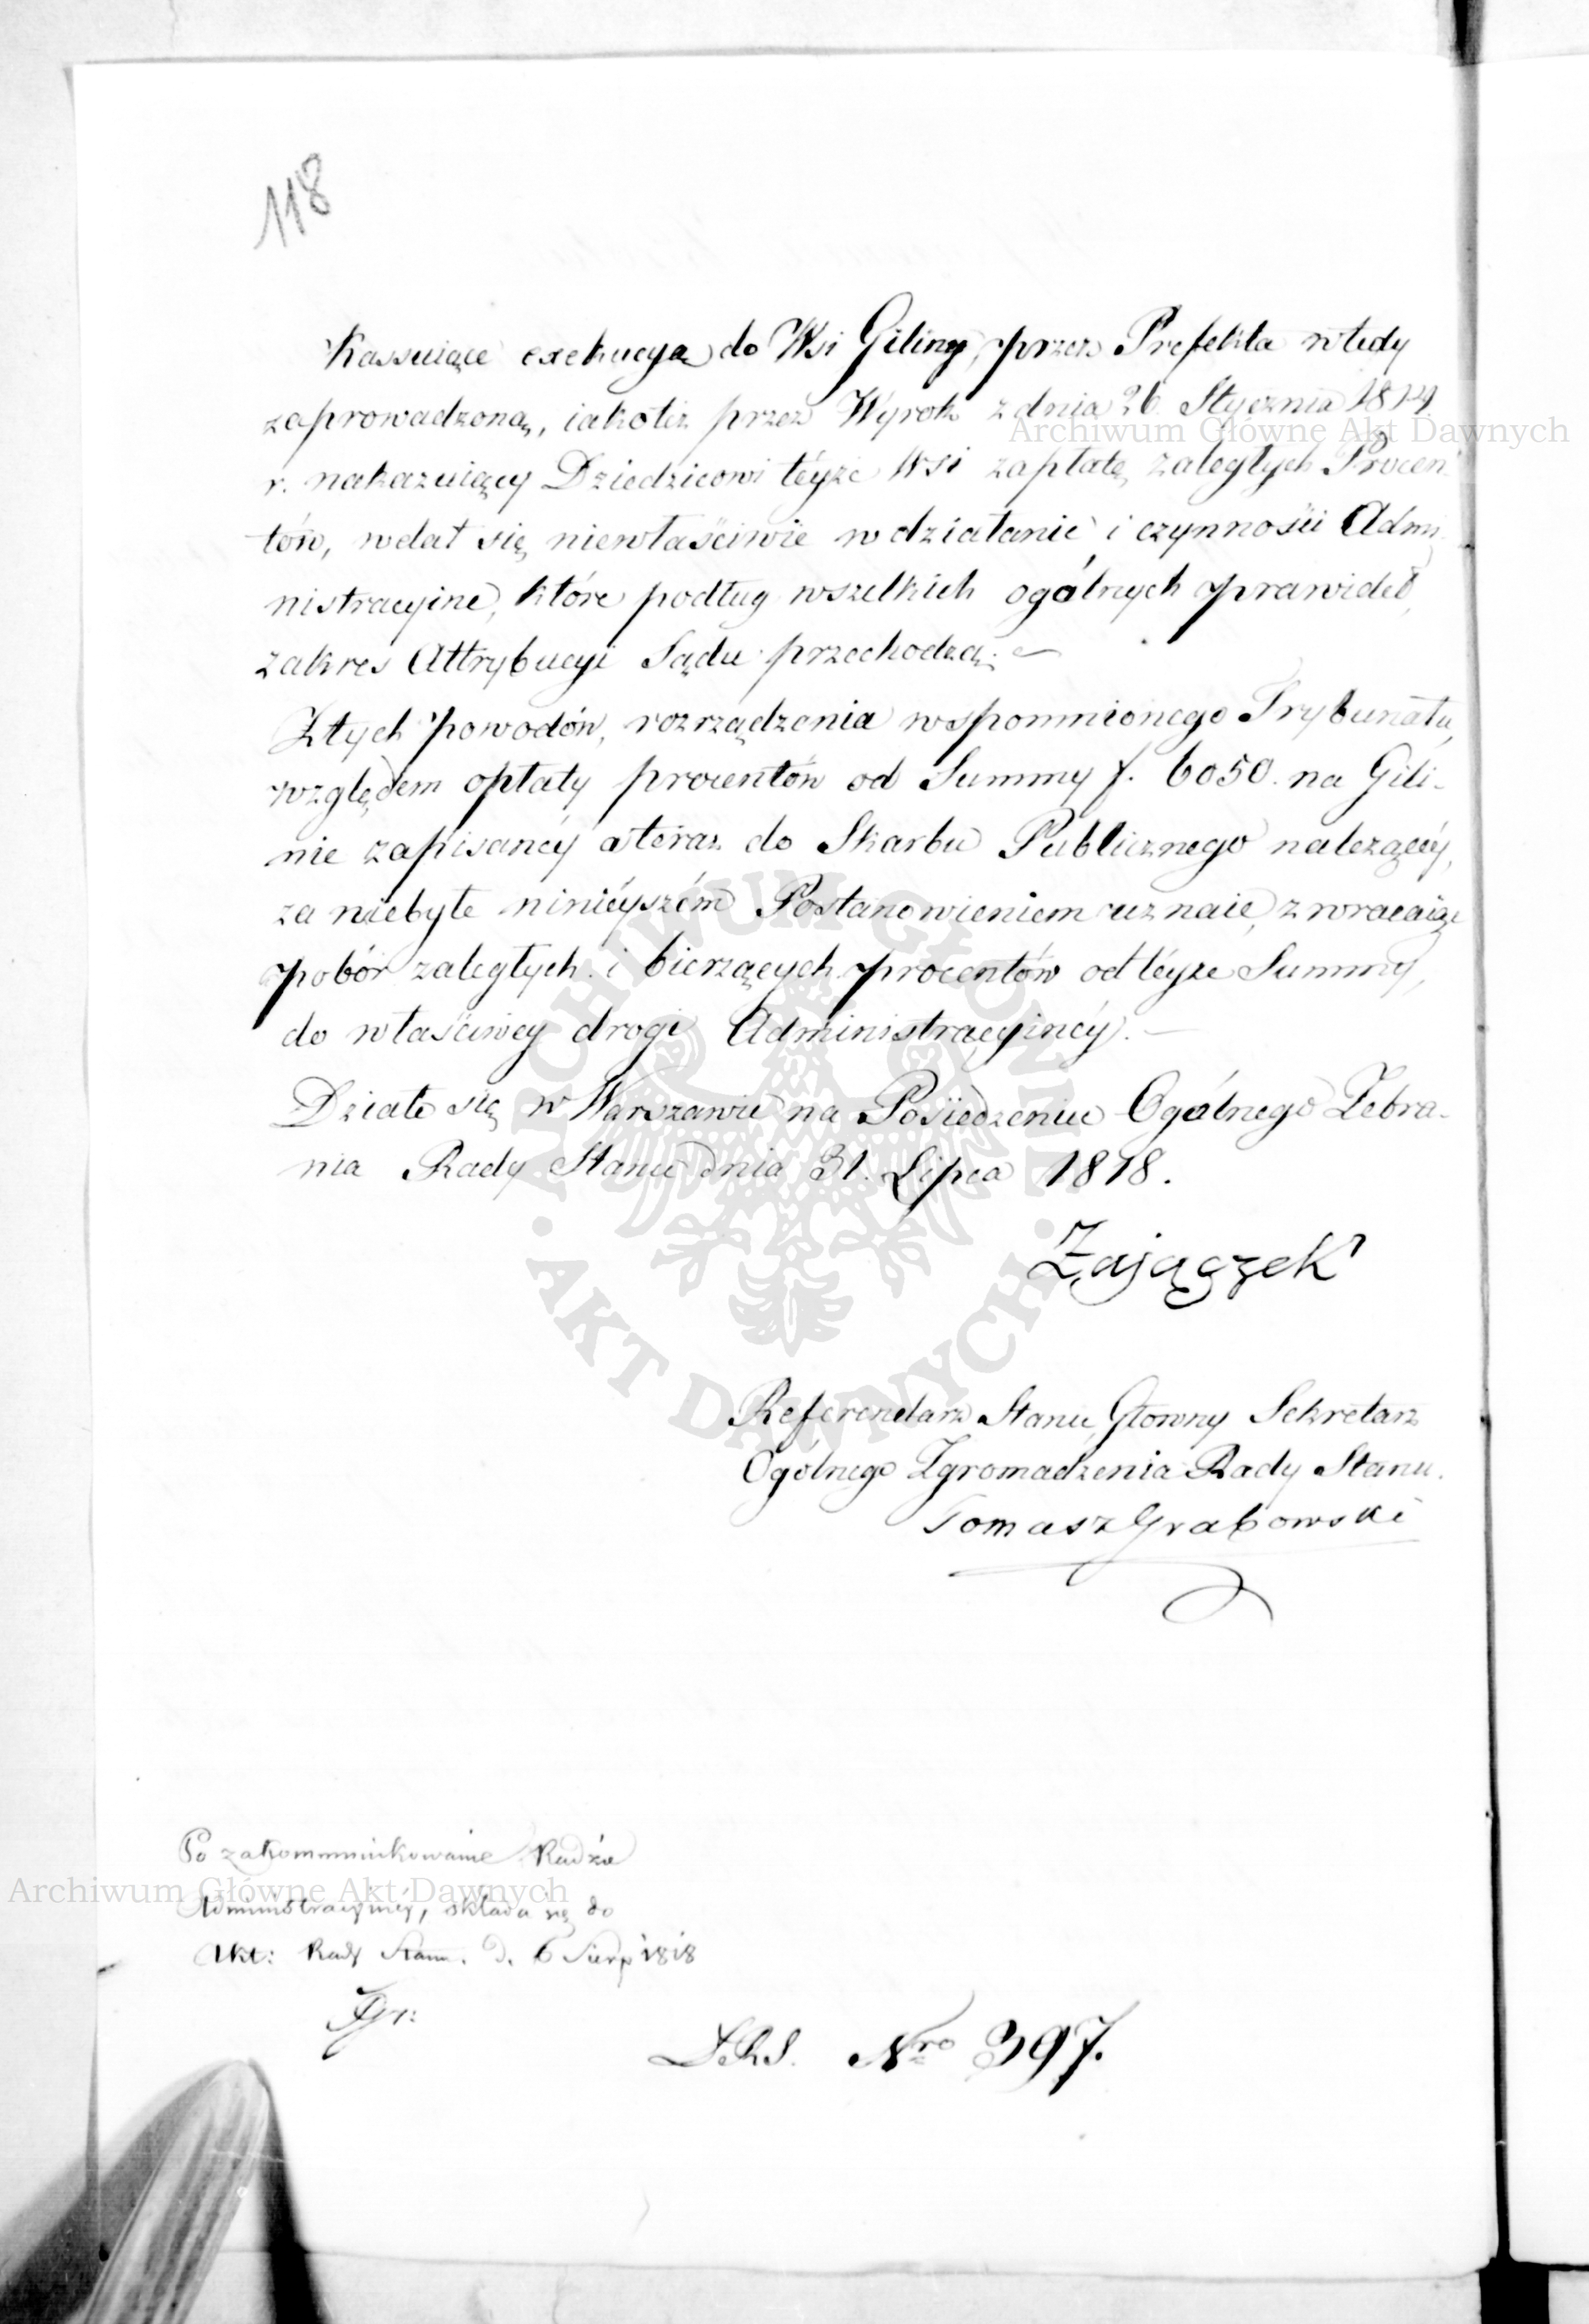 118
Kassuiące exekucyą do Wsi Giliny, przez Prefekta wtedy
zaprowadzoną, iakoteż przez Wyrok z dnia 26. Stycznia 1814.
r. nakazuiący Dziedzicowi téyże Wsi zapłatę zaległych Procen-
tów, wdał się niewłaściwie w działanie i czynności Admi-
nistracyine, które podług wszelkich ogólnych prawideł,
zakres Attrybucyi Sądu przechodzą. —
Z tych powodów, rozrządzenia wspomnionego Trybunału,
względem opłaty procentów od Summy f. 6050. na Gili-
nie zapisanéy a teraz do Skarbu Publicznego należącéy,
za niebyłe ninieyszém Postanowieniem uznaie, zwracaiąc
pobór zaległych i bierzących procentów od téyże Summy,
do właściwey drogi Administracyinéy. —
Działo się w Warszawie na Posiedzeniu Ogólnego Zebra-
nia Rady Stanu dnia 31. Lipca 1818.
Zajączek
Referendarz Stanu, Głowny Sekretarz
Ogólnego Zgromadzenia Rady Stanu.
Tomasz Grabowski
Po zakommunikowanie Radzie
Administracyinéy, składa się do
Akt: Rady Stanu. d. 6 Sierp 1818
Nro 397.
ARCHIWUM GŁÓWNE
AKT DAWNYCH
Archiwum Główne Akt Dawnych
Archiwum Główne Akt Dawnych